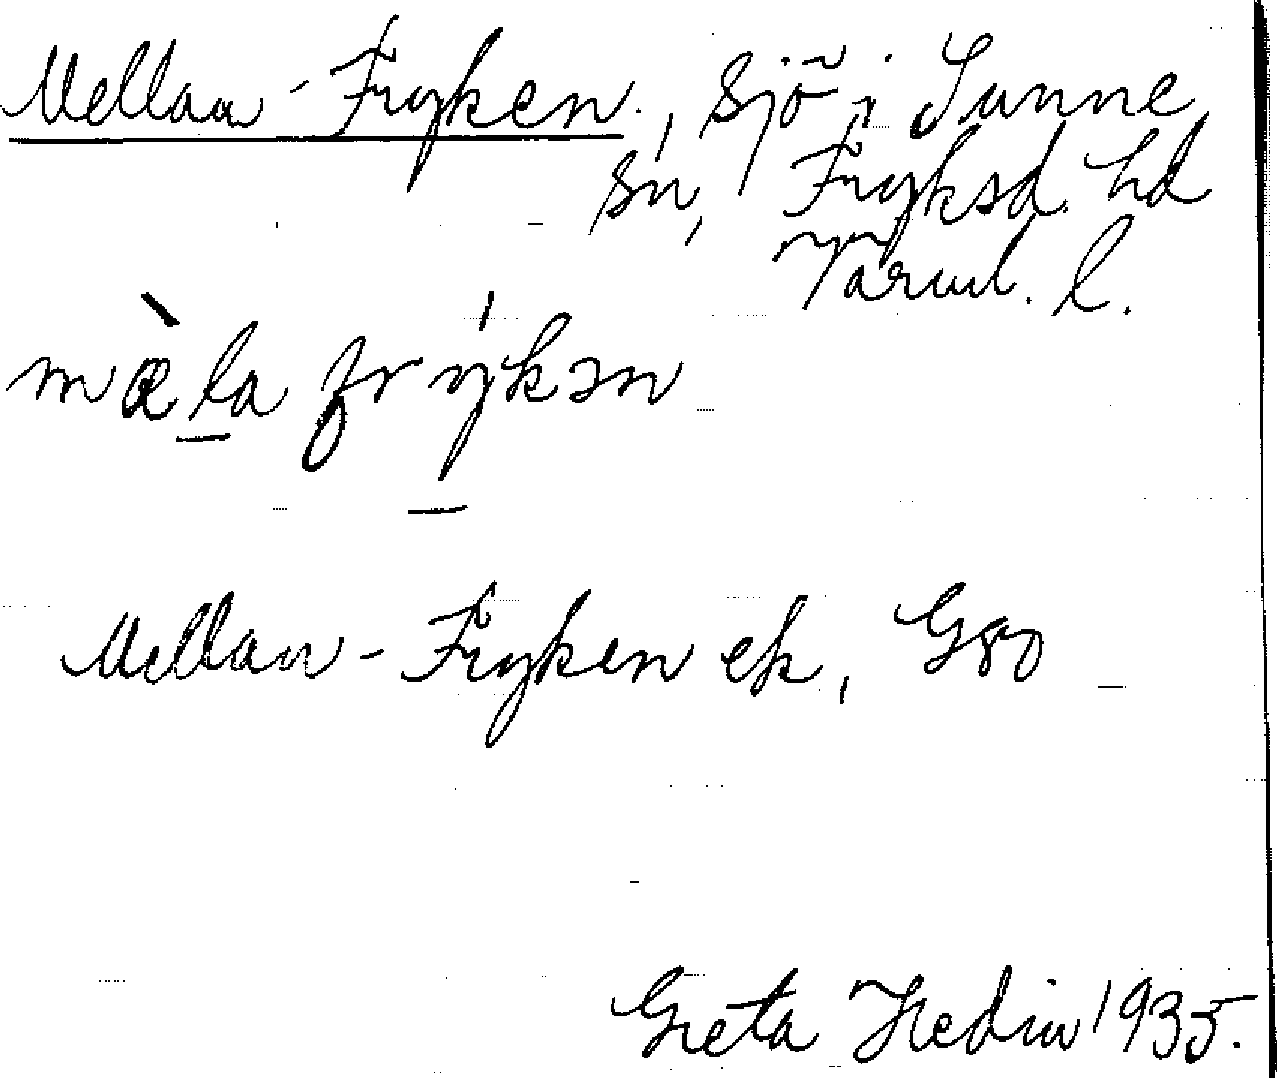 Mellan-Fryken, sjö i Sunne
sn, Fryksd. hd
Värml. l.
mæ̀la frýkən
Mellan-Fryken ek, Gso
Greta Hedin 1935.